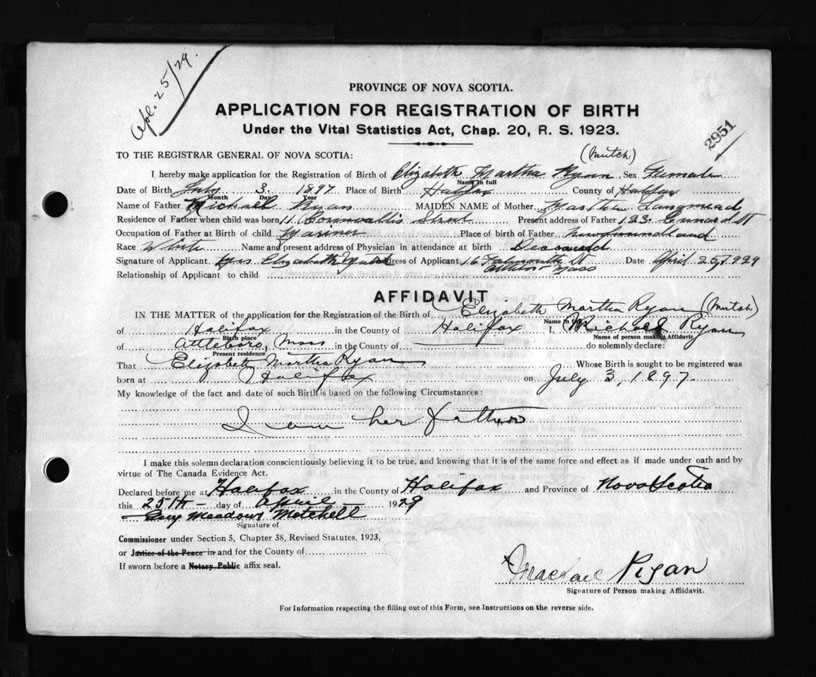 Apl. 25/29.
PROVINCE OF NOVA SCOTIA.
APPLICATION FOR REGISTRATION OF BIRTH
Under the Vital Statistics Act, Chap. 20, R. S. 1923.
2951
TO THE REGISTRAR GENERAL OF NOVA SCOTIA:
(Mutch)
I hereby make application for the Registration of Birth of Elizabeth Martha Ryan Sex Female
Name in full
Date of Birth July 3. 1897. Place of Birth Halifax County of Halifax
Month Day Year
Name of Father Michael Ryan MAIDEN NAME of Mother Martha Langmead
Residence of Father when child was born 11 Cornwallis Street Present address of Father 123 Gunard St
Occupation of Father at Birth of child Mariner Place of birth of Father Newfoundland
Race White Name and present address of Physician in attendance at birth Deceased
Signature of Applicant. Mrs Elizabeth Address of Applicant 16 Falmouth St Date April 25, 1929
Attleboro Mass
Relationship of Applicant to child
AFFIDAVIT
IN THE MATTER of the application for the Registration of the Birth of Elizabeth Martha Ryan (Mutch)
Name in full
of Halifax in the County of Halifax I, Michael Ryan
Birth place Name of person making Affidavit
of Attleboro, Mass in the County of do solemnly declare:
Present residence
That Elizabeth Martha Ryan Whose Birth is sought to be registered was
born at Halifax on July 3, 1897.
My knowledge of the fact and date of such Birth is based on the following Circumstances:
I am her father
I make this solemn declaration conscientiously believing it to be true, and knowing that it is of the same force and effect as if made under oath and by
virtue of The Canada Evidence Act.
Declared before me at Halifax in the County of Halifax and Province of Nova Scotia
this 25th day of April 1929
Guy Meadows Mitchell
Signature of
Commissioner under Section 5, Chapter 38, Revised Statutes, 1923,
or Justice of the Peace in and for the County of
If sworn before a Notary Public affix seal.
x Michael Ryan
Signature of Person making Affidavit.
For Information respecting the filling out of this Form, see Instructions on the reverse side.